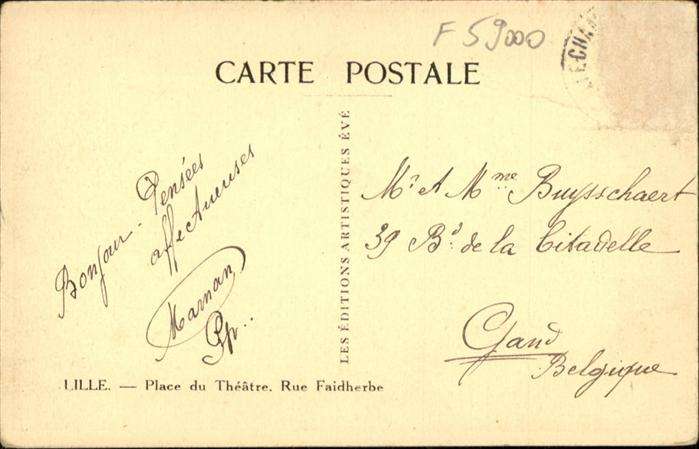 F 59000
CARTE POSTALE
Bonjour - Pensées
affectueuses
Maman
LES ÉDITIONS ARTISTIQUES ÉVÉ
Mr et Mme Buysschaert
39 Bd. de la Citadelle
Gand
Belgique
LILLE. — Place du Théâtre. Rue Faidherbe